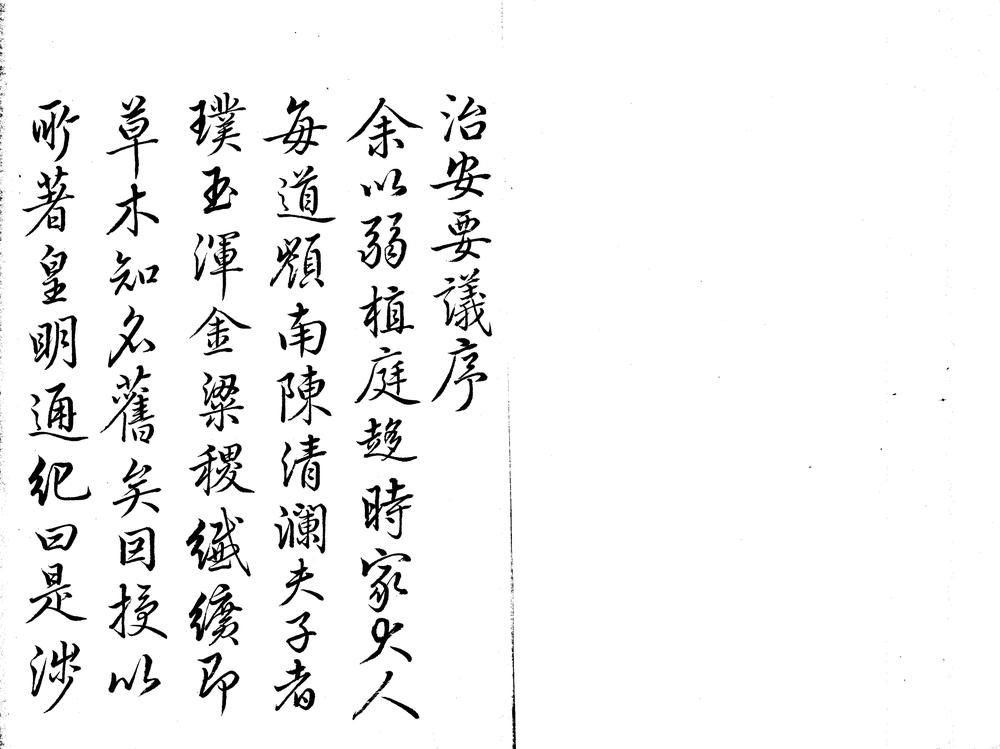 治安要議序
余以弱植庭趍時家大人
每道嶺南陳清瀾夫子者
璞玉渾金粱稷纖纊即
草木知名舊矣因授以
所著皇明通紀曰是涉